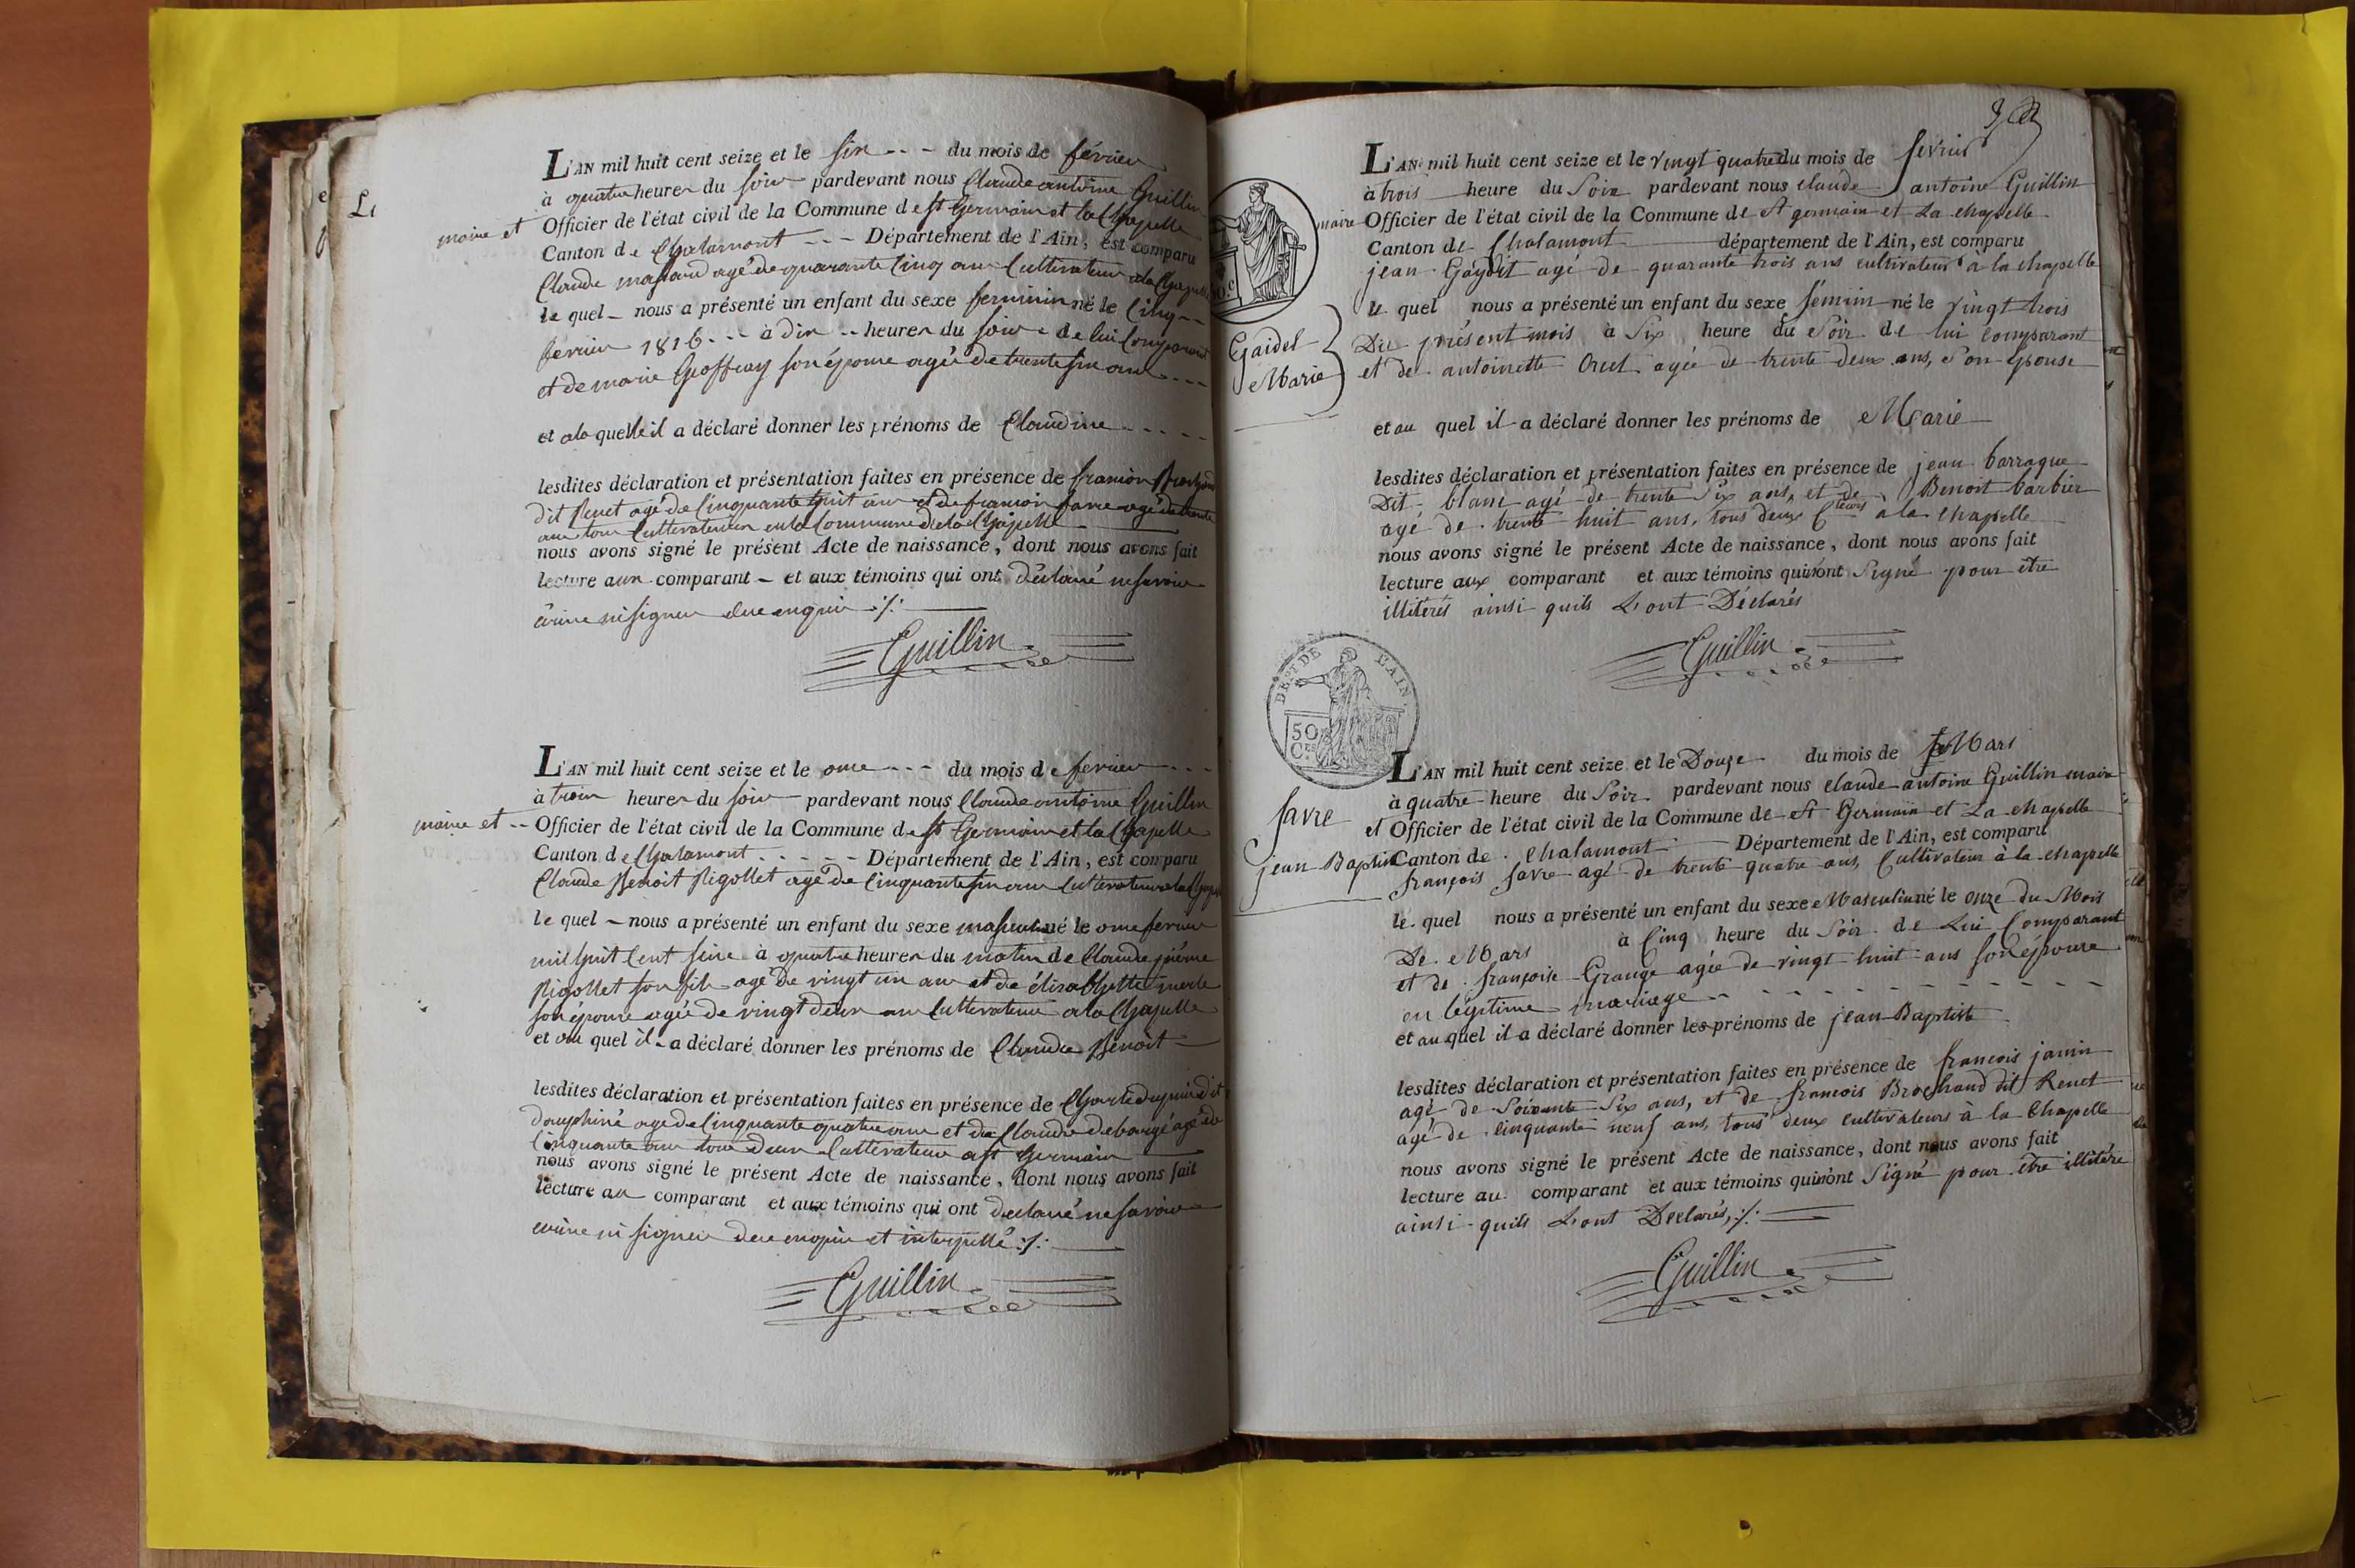 L'AN mil huit cent seize et le six --- du mois de février
à quatre heures du soir pardevant nous Claude antoine Guillin
maire et Officier de l'état civil de la Commune de st Germain et la Chapelle
Canton de Chalamont --- Département de l'Ain, est comparu
Claude agé de quarante cinq ans Cultivateur a la Chapelle
le quel - nous a présenté un enfant du sexe feminin né le cinq --
février 1816 --- à dix -- heures du soir de lui Comparant
et de marie Geoffray son épouse agée de trente six ans ---
et a la quelle il a déclaré donner les prénoms de Claudine -----
lesdites déclaration et présentation faites en présence de francois Brochand
dit Renet agé de Cinquante huit ans et de francois favre agé de trente
ans tous Cultivateurs en la Commune de la Chapelle
nous avons signé le présent Acte de naissance, dont nous avons fait
lecture aux comparant - et aux témoins qui ont déclaré ne savoir
écrire ni signer de ce enquis ./.
Guillin
L'AN mil huit cent seize et le onze --- du mois de fevrier ---
à trois heures du soir pardevant nous Claude antoine Guillin
maire et -- Officier de l'état civil de la Commune de st Germain et la Chapelle
Canton de Chalamont ----- Département de l'Ain, est comparu
Claude Benoit Rigollet agé de Cinquante six ans Cultivateur a la Chapelle
le quel - nous a présenté un enfant du sexe masculin né le onze fevrier
mil huit Cent seize à quatre heures du matin de Claude
Rigollet son fils agé de vingt un ans et de élisabhette merle
son épouse agée de vingt deux ans Cultivateur a la Chapelle
et au quel il - a déclaré donner les prénoms de Claude Benoit
lesdites déclaration et présentation faites en présence de Charle dupuis dit
dauphiné agé de Cinquante quatre ans et de Claude debourgé agé de
Cinquante ans tous deux Cultivateur a st Germain
nous avons signé le présent Acte de naissance, dont nous avons fait
lecture au comparant et aux témoins qui ont declaré ne savoir
écrire ni signer de ce enquis et interpellé ./.
Guillin
L'AN mil huit cent seize et le vingt quatre du mois de fevrier
à trois heure du Soir pardevant nous claude antoine Guillin
maire Officier de l'état civil de la Commune de St germain et La chapelle
Canton de Chalamont département de l'Ain, est comparu
jean Gaydit agé de quarante trois ans cultivateur à la chapelle
le quel nous a présenté un enfant du sexe féminin né le vingt trois
Gaidel
Marie
Du présent mois à Six heure du Soir de lui comparant
et de antoinette Oret agée de trente deux ans, Son Epouse
et au quel il a déclaré donner les prénoms de Marie
lesdites déclaration et présentation faites en présence de jean barraque
Dit blanc agé de trente Six ans, et de Benoit barbier
agé de trente huit ans, tous deux Cteurs a la chapelle
nous avons signé le présent Acte de naissance, dont nous avons fait
lecture aux comparant et aux témoins qui n'ont Signé pour être
illitérés ainsi quils L'ont Déclarés
Guillin
DEPT DE L'AIN
50 Ces
L'AN mil huit cent seize et le Douze du mois de Mars
à quatre heure du Soir pardevant nous claude antoine Guillin maire
et Officier de l'état civil de la Commune de St Germain et La chapelle
favre
jean Baptiste
Canton de Chalamont Département de l'Ain, est comparu
françois favre agé de trente quatre ans, Cultivateur à la chapelle
le quel nous a présenté un enfant du sexe Masculin né le onze du Mois
De Mars à Cinq heure du Soir de Lui Comparant
et de françoise Grange agée de vingt huit ans son épouse
en légitime mariage
et au quel il a déclaré donner les prénoms de jean Baptiste
lesdites déclaration et présentation faites en présence de françois janin
agé de Soixante Six ans, et de francois Brochand dit Renet
agé de cinquante neuf ans, tous deux cultivateurs à la Chapelle
nous avons signé le présent Acte de naissance, dont nous avons fait
lecture au comparant et aux témoins qui n'ont Signé pour être illitére
ainsi quils L'ont Declarés, ./.
Guillin